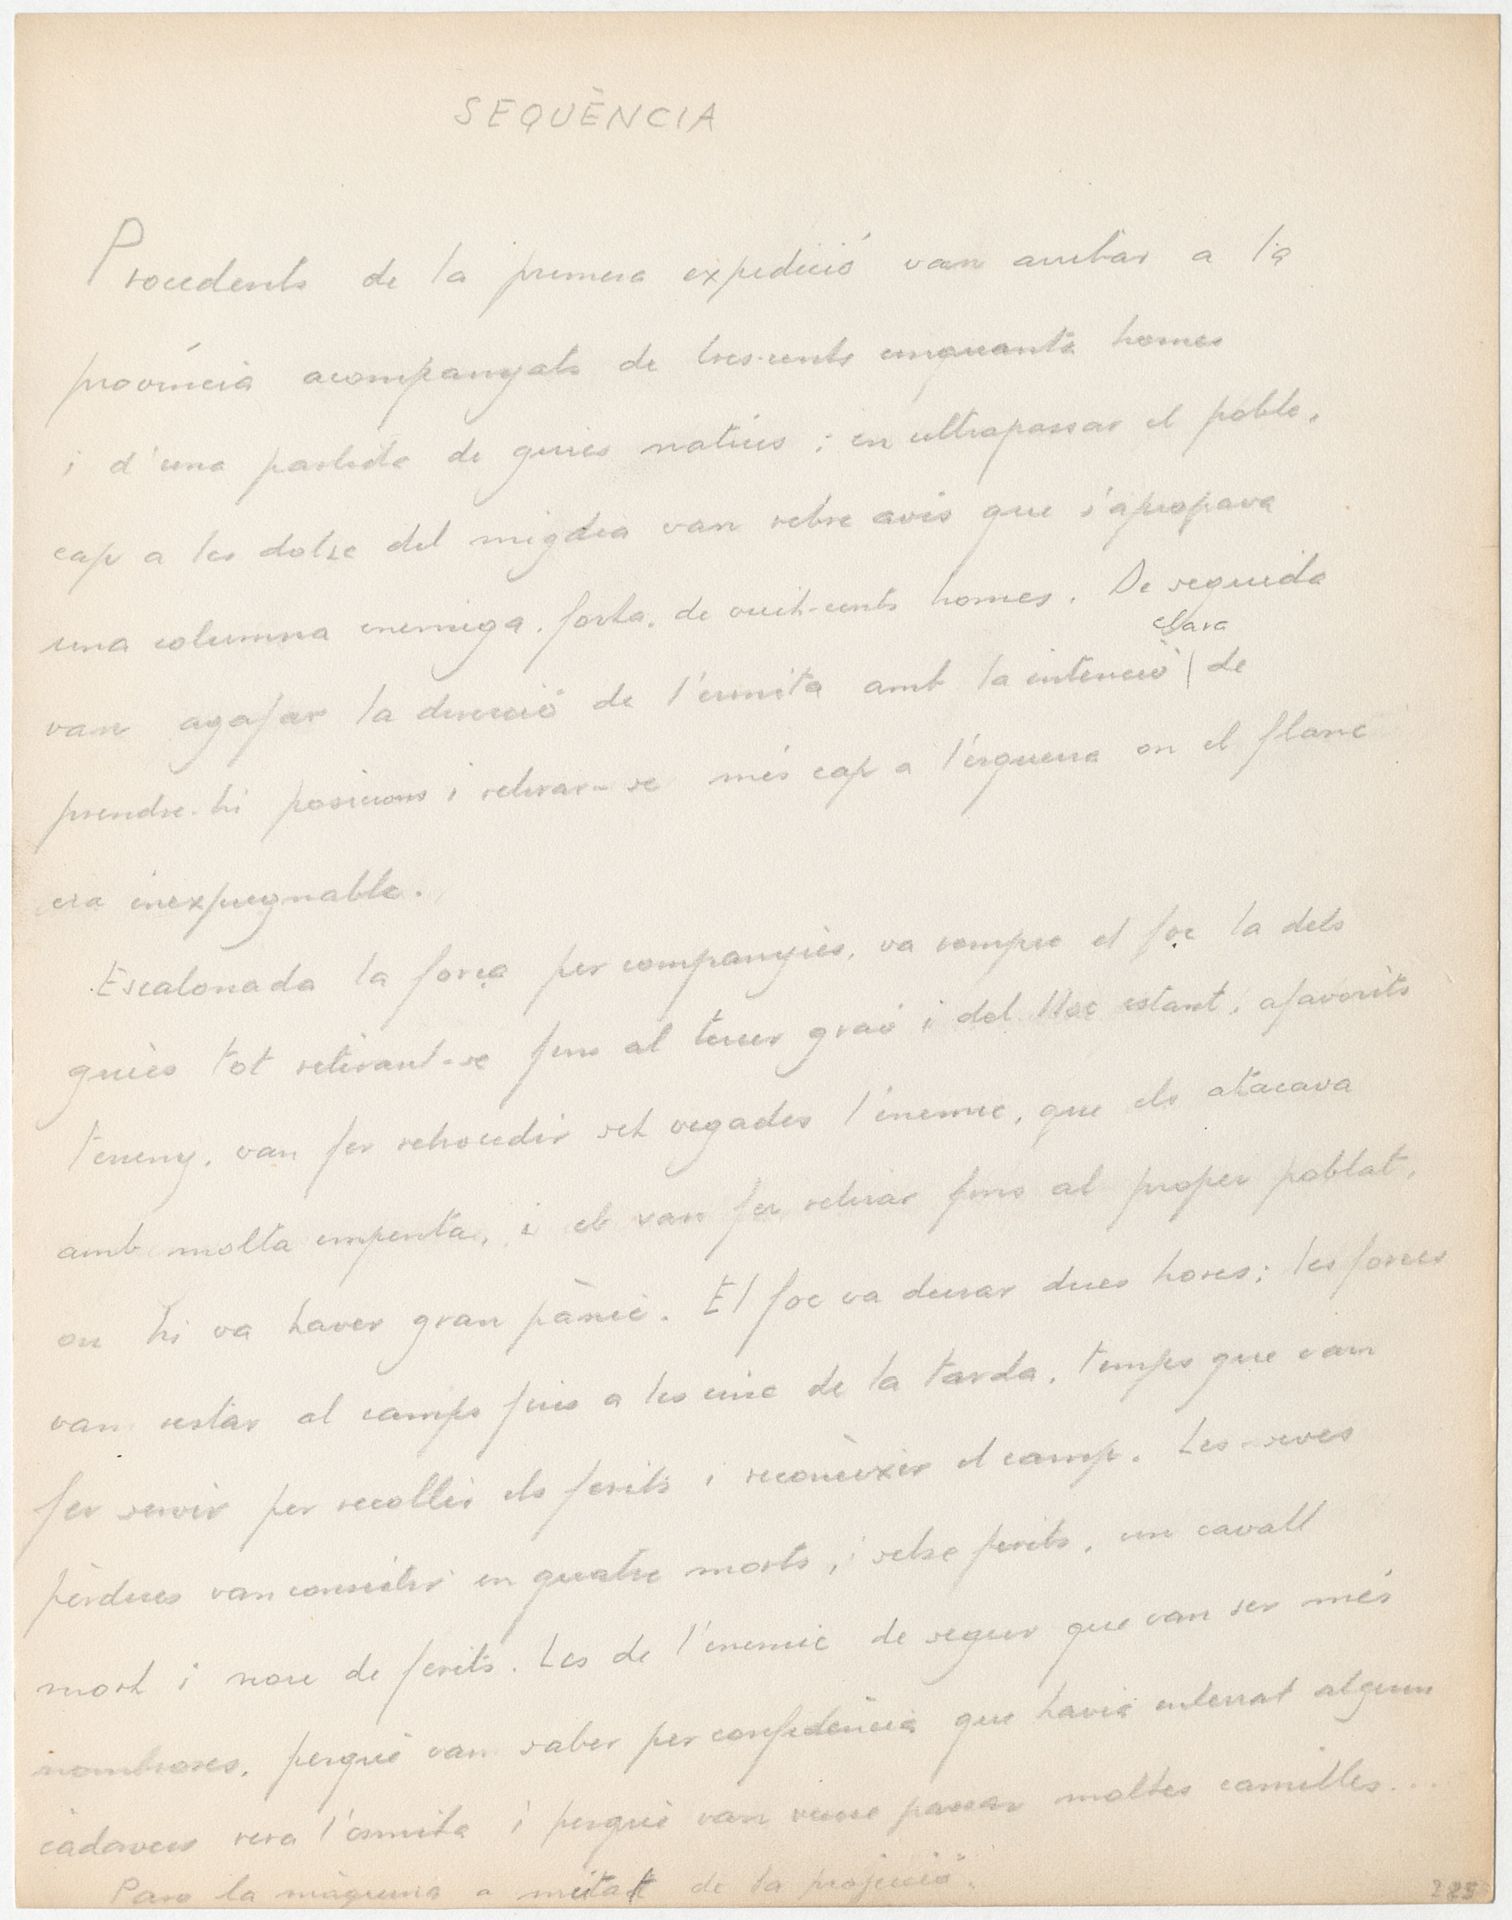 SEQÜÈNCIA
Procedents de la primera expedició van arribar a la
província acompanyats de tres-cents cinquanta homes
i d'una partida de guies natius; en ultrapassar el poble,
cap a les dotze del migdia van rebre avís que s'apropava
una columna enemiga, forta, de vuit-cents homes. De seguida
clara
van agafar la direcció de l'ermita amb la intenció | de
prendre-hi posicions i retirar-se més cap a l'esquerra on el flanc
era inexpugnable.
Escalonada la força per companyies, va rompre el foc la dels
guies tot retirant-se fins al tercer graó i del lloc estant, afavorits
terreny, van fer retrocedir set vegades l'enemic, que els atacava
amb molta empenta, i el van fer retirar fins al proper poblat,
on hi va haver gran pànic. El foc va durar dues hores; les forces
van restar al camp fins a les cinc de la tarda, temps que van
fer servir per recollir els ferits i reconèixer el camp. Les seves
pèrdues van consistir en quatre morts, i setze ferits, un cavall
mort i nou de ferits. Les de l'enemic de segur que van ser més
nombroses, perquè van saber per confidència que havia enterrat algun
cadavers rera l'ermita i perquè van veure passar moltes camilles...
Paro la màquina a meitat de la projecció.
225